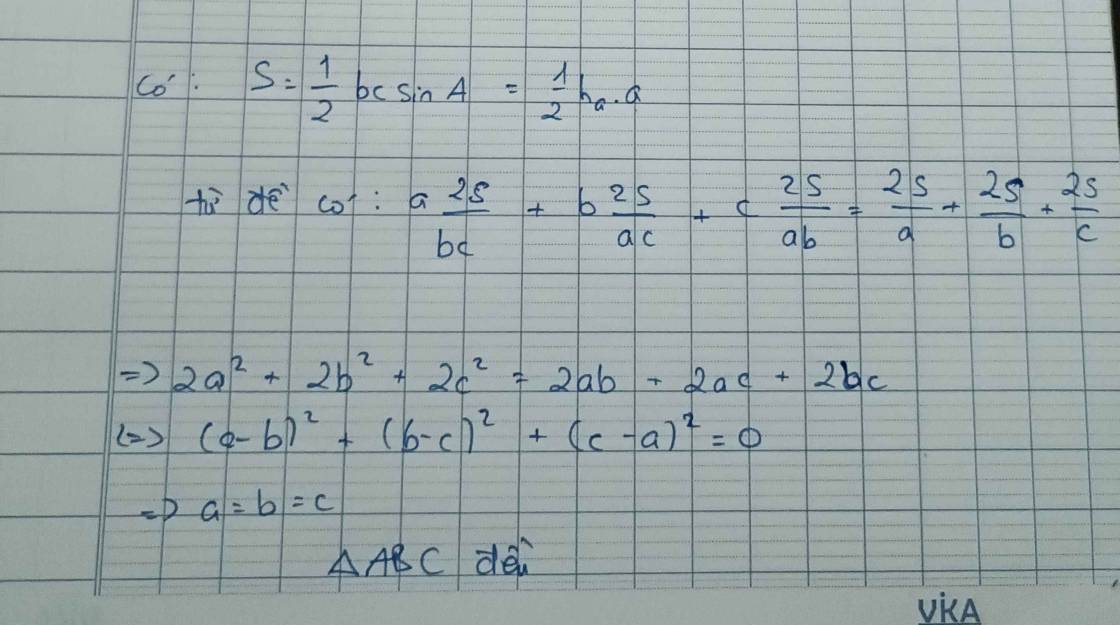 Có : S = \frac{1}{2} bc sin A = \frac{1}{2} h_a . a
từ đề có : a \frac{2S}{bc} + b \frac{2S}{ac} + c \frac{2S}{ab} = \frac{2S}{a} + \frac{2S}{b} + \frac{2S}{c}
=> 2a² + 2b² + 2c² = 2ab + 2ac + 2bc
<=> (a-b)² + (b-c)² + (c-a)² = 0
=> a = b = c
Δ ABC đều
VIKA